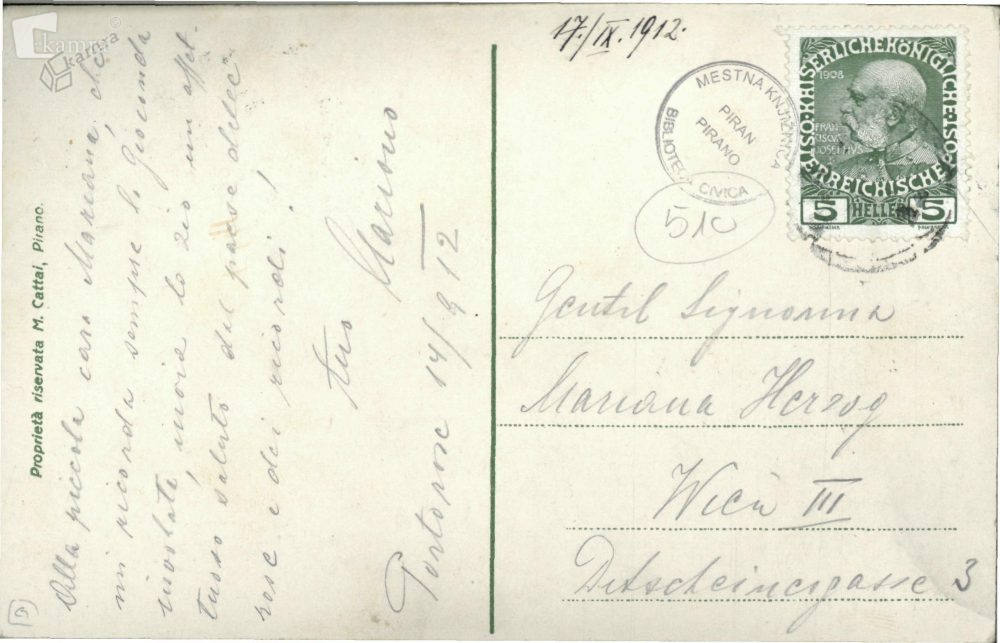 Alla piccola cara Mariana, che
mi ricorda sempre la Gioconda
involata, invia lo zio un affet-
tuoso saluto dal paese delle
rose e dei ricordi!
tuo
Portorose 14/9 12
Proprietà riservata M. Cattai, Pirano.
kamra
kamra
17./IX. 1912.
MESTNA KNJIŽNICA
PIRAN
PIRANO
BIBLIOTECA CIVICA
510
KAISERLICHEKÖNIGLICHE
ÖSTERREICHISCHE
1908
FRAN
CISCVS
IOSEPHVS
5 HELLER 5
Gentil Signorina
Mariana Herzog
Wien III
3